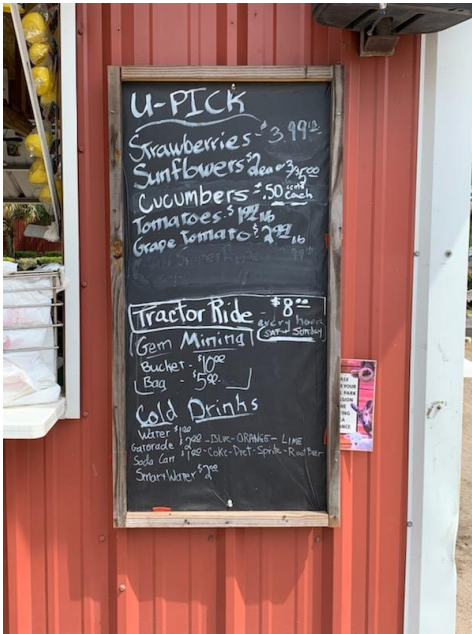 U-PICK
Strawberries - $3.99 lb
Sunflowers $2 ea or 3/5.00
Cucumbers - .50 cents each
Tomatoes - $1.99 lb
Grape Tomato $2.99 lb
Tractor Ride - $8.00
every hour
SAT - Sunday
Gem Mining
Bucket - $10.00
Bag - $5.00
Cold Drinks
Water $1.00
Gatorade $2.00 - Blue - ORANGE - LIME
Soda Can $1.00 - Coke - Diet - Sprite - Root Beer
Smart Water $2.00